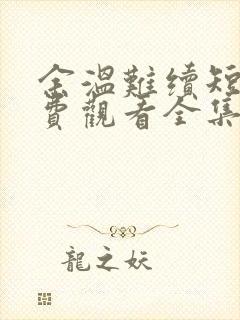 余溫難續短
費觀看全集
龍之妖